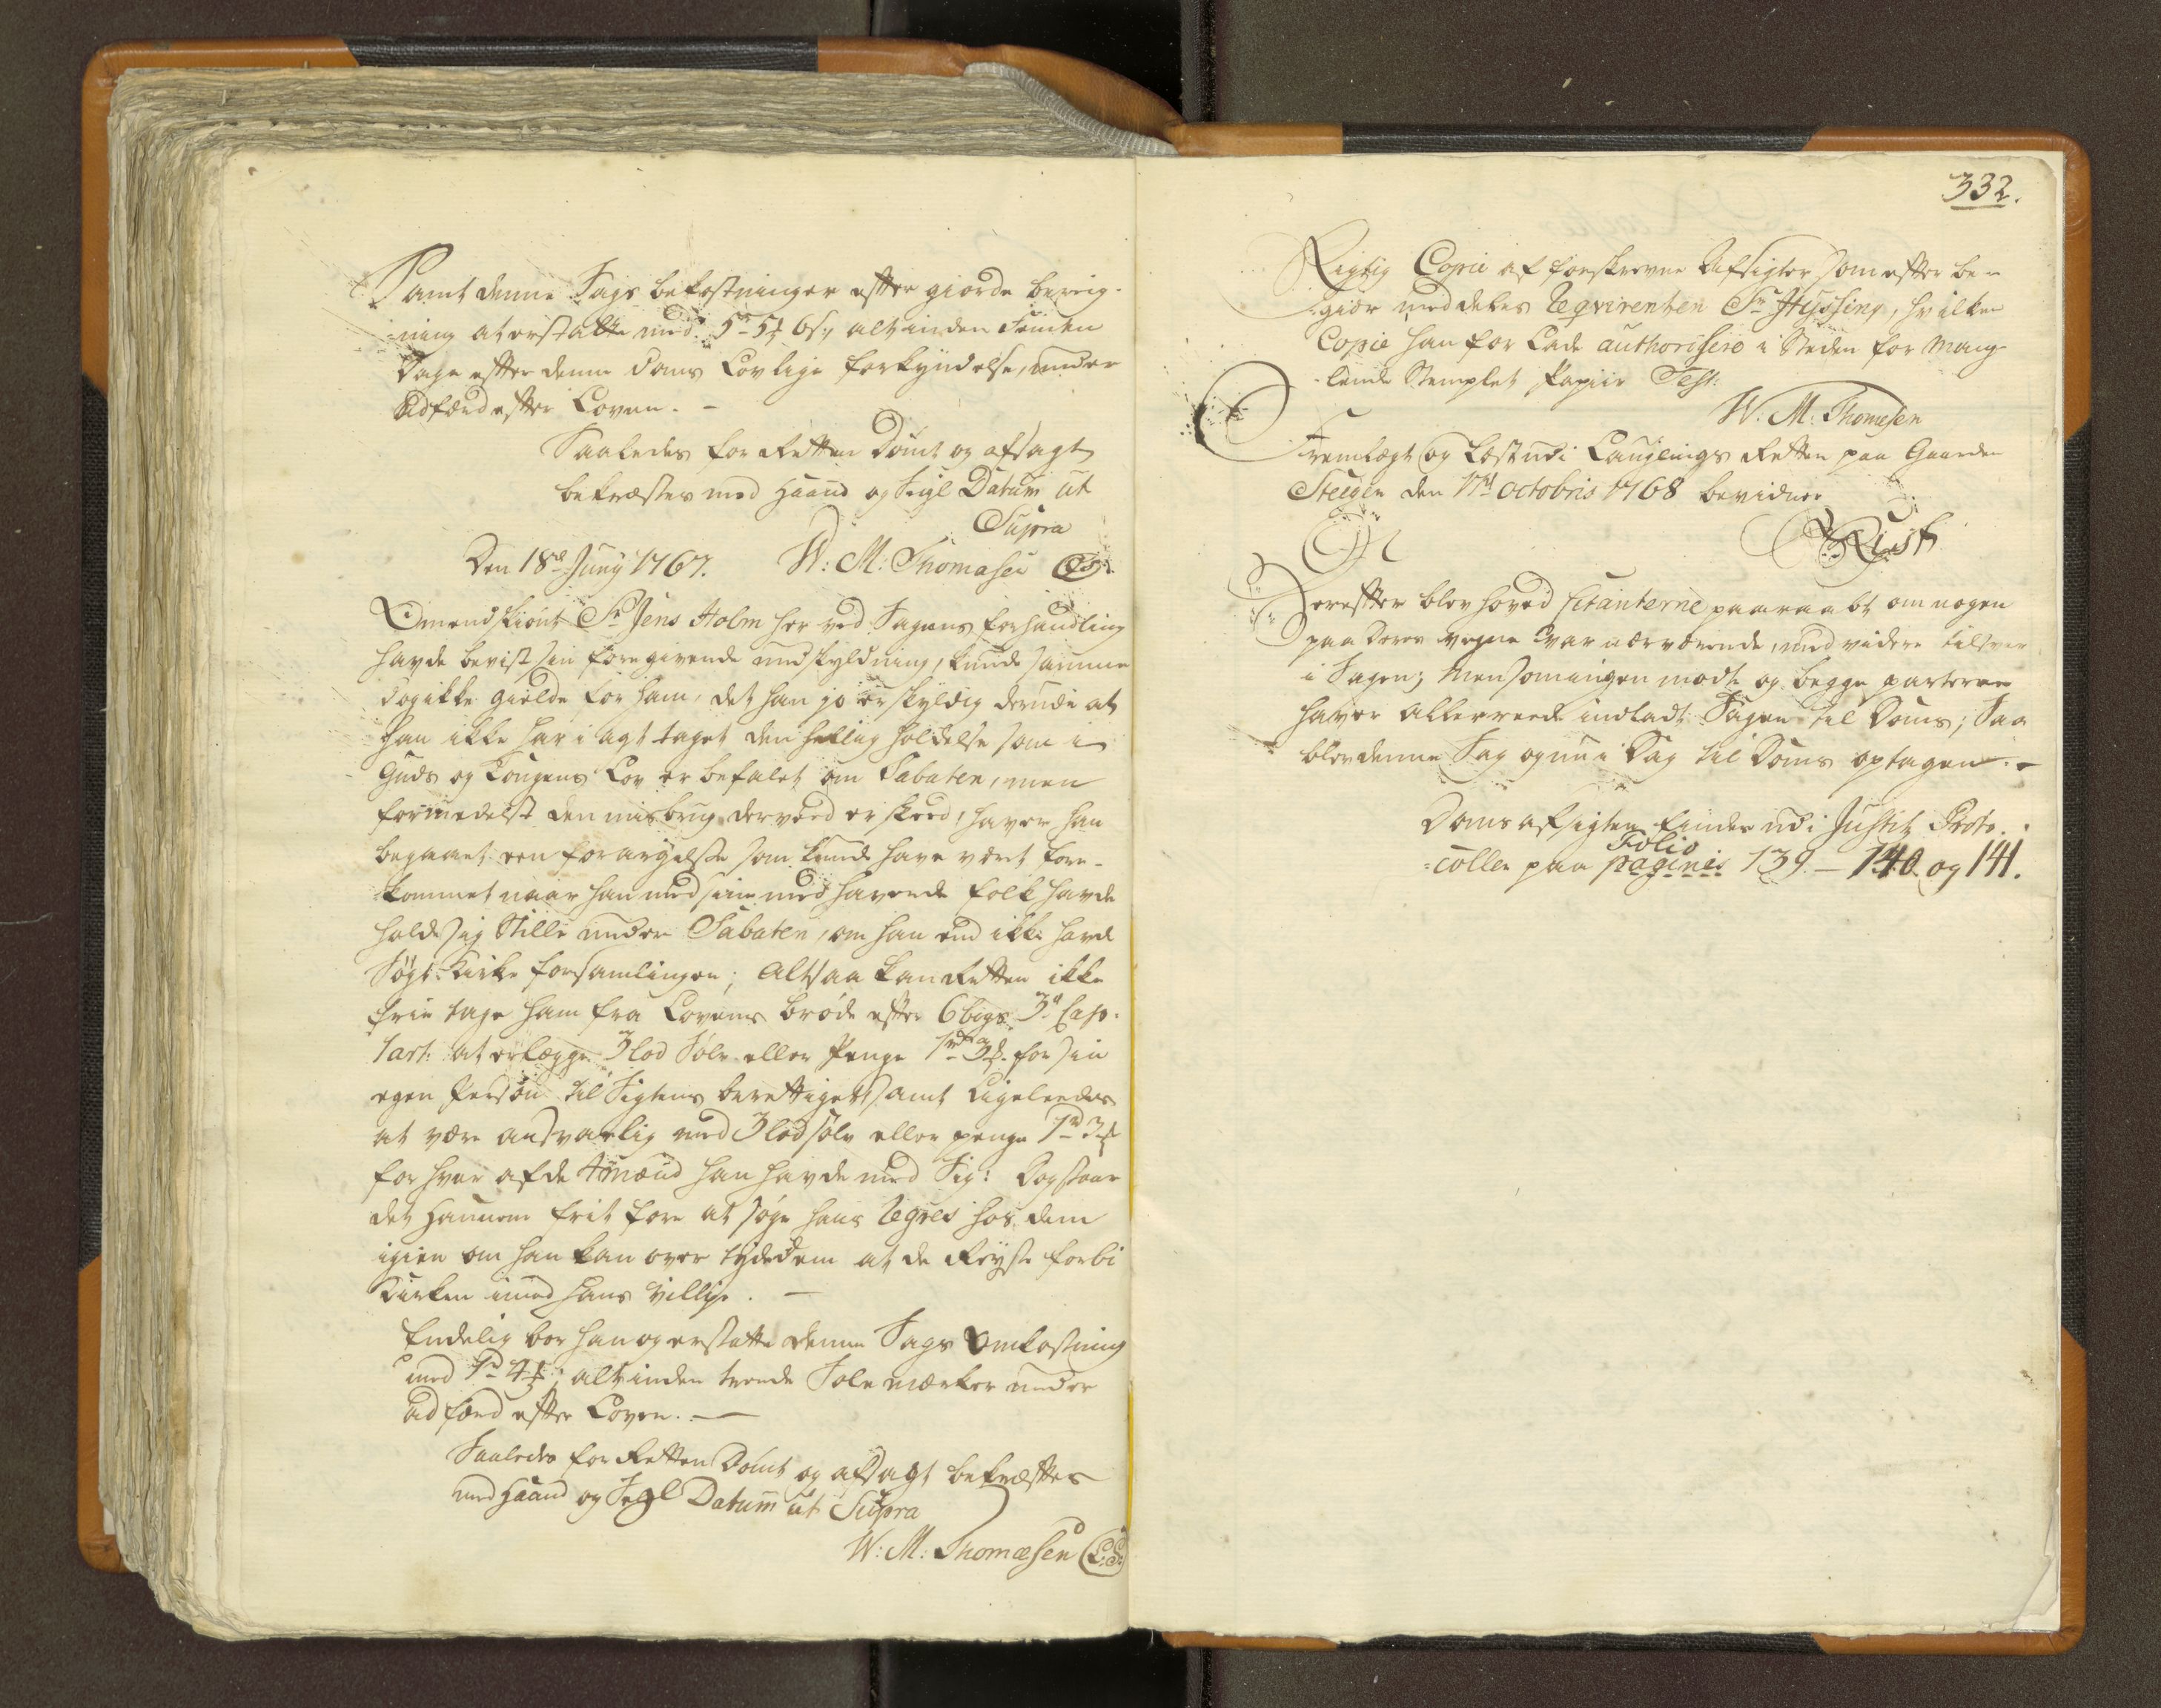 Samt denne Sags bekostninger efter giorde bereig-
ning at erstatte med 5rd 5ß alt inden Femten
Dage efter denne Doms Lovlige forkyndelse, under
Adfærd efter Loven. -
Saaledes for Retten Dømt og afsagt
bekræftes med Haand og Segl Datum ut
Supra
Den 18de Juny 1767. W: M: Thomasen
Omendskiønt Sr Jens Holm her ved Sagens forhandling
havde bevist sin foregivende undskyldning, kunde samme
dog ikke gielde for ham, det han jo er skyldig derudi at
han ikke har i agt taget den hellig holdelse som i
Guds og Kongens Lov er befalet om Sabaten, men
formedelst den misbrug derved er skeed, haver han
begaaet een forargelse som kunde have vært fore-
kommet naar han med sine med havende folk havde
holdt sig Stille under Sabaten, om han end ikke havde
Søgt Kirke forsamlingen; Altsaa kan Retten ikke
frie tage ham fra Lovens brøde efter 6 bogs 3d Cap:
1 art: at erlægge 3 lod Sølv eller Penge 1rd 3 for sin
egen Person til Sigtens berettiget, samt Ligeleedes
at være ansvarlig med 3 lod sølv eller penge 1rd 3
for hver af de 4 mænd han havde med Sig: Dog staar
det Hannem frit fore at søge hans Regres hos dem
igien om han kan over tyde dem at de Reyste forbi
Kirken imod hans villie. -
Endelig bør han og erstatte denne Sags Omkostning
med 1rd 4; alt inden trende Solemærker under
adfærd efter Loven. -
Saaledes for Retten Dømt og afsagt bekræftes
med Haand og Segl Datum ut Supra
W: M: Thomæsen (L:S:)
332.
Rigtig Copie af foreskrevne Afsigter som efter be-
giær meddeles Reqvirenten Sr Hyssing, hvilken
Copie han for Lade authorisere i Steden for Mang-
lende Stemplet Papiir Test:
W. M: Thomesen
Fremlagt og Læst udi Laugtings Retten paa Gaarden
Steegen den 17d octobris 1768 bevidner
Rust
Derefter blev hoved citanterne paaraabt om nogen
paa deres vegne var nærværende, med videre tilsvar
i Sagen; Men som ingen mødte og begge parterne
haver allerreede indladt Sagen til Doms; Saa
blev denne Sag og nu i Dag til Doms optagen. -
Doms afsigten findes udi Justitz Proto-
Folio
-collen paa paginis 139 - 140 og 141.